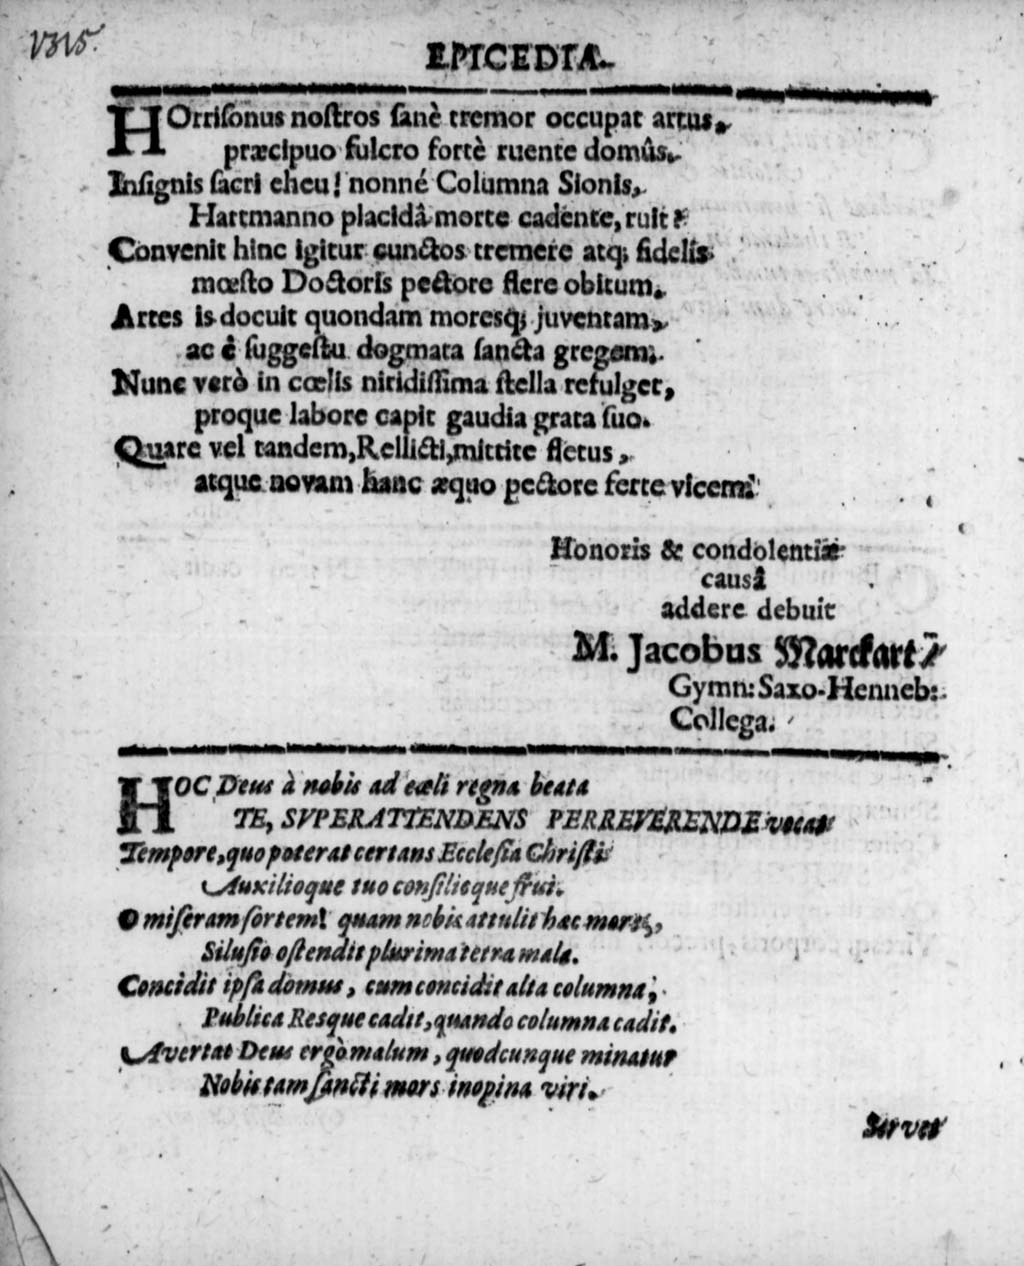 V315.
EPICEDIA.
HOrriſonus noſtros ſanè tremor occupat artus,
præcipuo fulcro fortè ruente domûs.
Inſignis ſacri eheu! nonné Columna Sionis,
Hartmanno placidâ morte cadente, ruit?
Convenit hinc igitur cunctos tremere atq; fidelis
mœſto Doctoris pectore flere obitum.
Artes is docuit quondam moresq; juventam,
ac è ſuggeſtu dogmata ſancta gregem;
Nunc verò in cœlis nitidiſſima ſtella refulget,
proque labore capit gaudia grata ſuo.
Quare vel tandem, Rellicti, mittite fletus,
atque novam hanc æquo pectore ferte vicem!
Honoris & condolentiæ
causâ
addere debuit
M. Jacobus Marckart /
Gymn: Saxo-Henneb:
Collega.
HOC Deus à nobis ad cœli regna beata
TE, SVPERATTENDENS PERREVERENDE vocat
Tempore, quo poterat certans Eccleſia Chriſti
Auxilioque tuo conſilioque frui.
O miſeram ſortem! quam nobis attulit hæc mors,
Siluſio oſtendit plurima tetra mala.
Concidit ipſa domus, cum concidit alta columna;
Publica Resque cadit, quando columna cadit.
Avertat Deus ergò malum, quodcunque minatur
Nobis tam ſancti mors inopina viri.
Servet